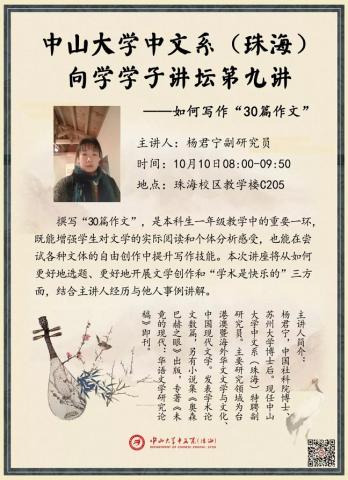 中山大学中文系（珠海）
向学学子讲坛第九讲
——如何写作“30篇作文”
主讲人：杨君宁副研究员
时间：10月10日08:00-09:50
地点：珠海校区教学楼C205
撰写“30篇作文”，是本科生一年级教学中的重要一环，
既能增强学生对文学的实际阅读和个体分析感受，也能在尝
试各种文体的自由创作中提升写作技能。本次讲座将从如何
更好地选题、更好地开展文学创作和“学术是快乐的”三方
面，结合主讲人经历与他人事例讲解。
主讲人简介：
杨君宁，中国社科院博士、
苏州大学博士后。现任中山
大学中文系（珠海）特聘副
研究员。主要研究领域为台
港澳暨海外华文文学与文化、
中国现代文学。发表学术论
文数篇，另有小说集《奥森
巴赫之眼》出版，专著《未
竟的现代：华语文学研究论
稿》即刊。
中山大学中文系(珠海)
DEPARTMENT OF CHINESE (ZHUHAI), SYSU